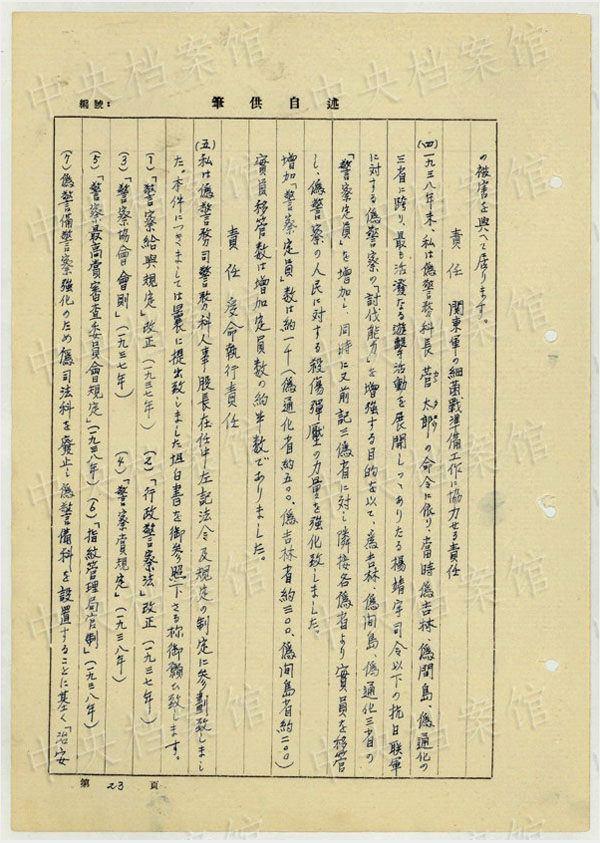 編號：
筆供自述
の被害を與へて居ります。
責任　関東軍の細菌戰準備工作に協力せる責任
(四)一九三八年末、私は偽警務科長菅太郎の命令に依り、當時偽吉林、偽間島、偽通化の
三省に跨り、最も活潑なる遊擊活動を展開しつゝありたる楊靖宇司令以下の抗日联軍
に対する偽警察の「討伐能力」を増強する目的を以て、偽吉林、偽間島、偽通化三省の
「警察定員」を増加し、同時に又前記三偽省に対し隣接各偽省より實員を移管
し、偽警察の人民に対する殺傷彈壓の力量を强化致しました。
増加「警察定員」数は約一千(偽通化省約五〇〇、偽吉林省約三〇〇、偽間島省約二〇〇)
實員移管数は増加定員数の約半数でありました。
責任　受命執行責任
(五)私は偽警務司警務科人事股長在任中左記法令及規定の制定に参劃致しまし
た。本件につきましては曩に提出致しました坦白書を御参照下さる様御願ひ致します。
(1)「警察給與規定」改正(一九三七年)　(2)「行政警察法」改正(一九三七年)
(3)「警察協會會則」(一九三七年)　(4)「警察賞規定」(一九三八年)
(5)「警察最高賞審査委員會規定」(一九三八年)　(6)「指紋管理局官制」(一九三八年)
(7)偽警備警察强化のため偽司法科を廢止し偽警備科を設置することに基く「治安
第 23 頁
中央档案馆